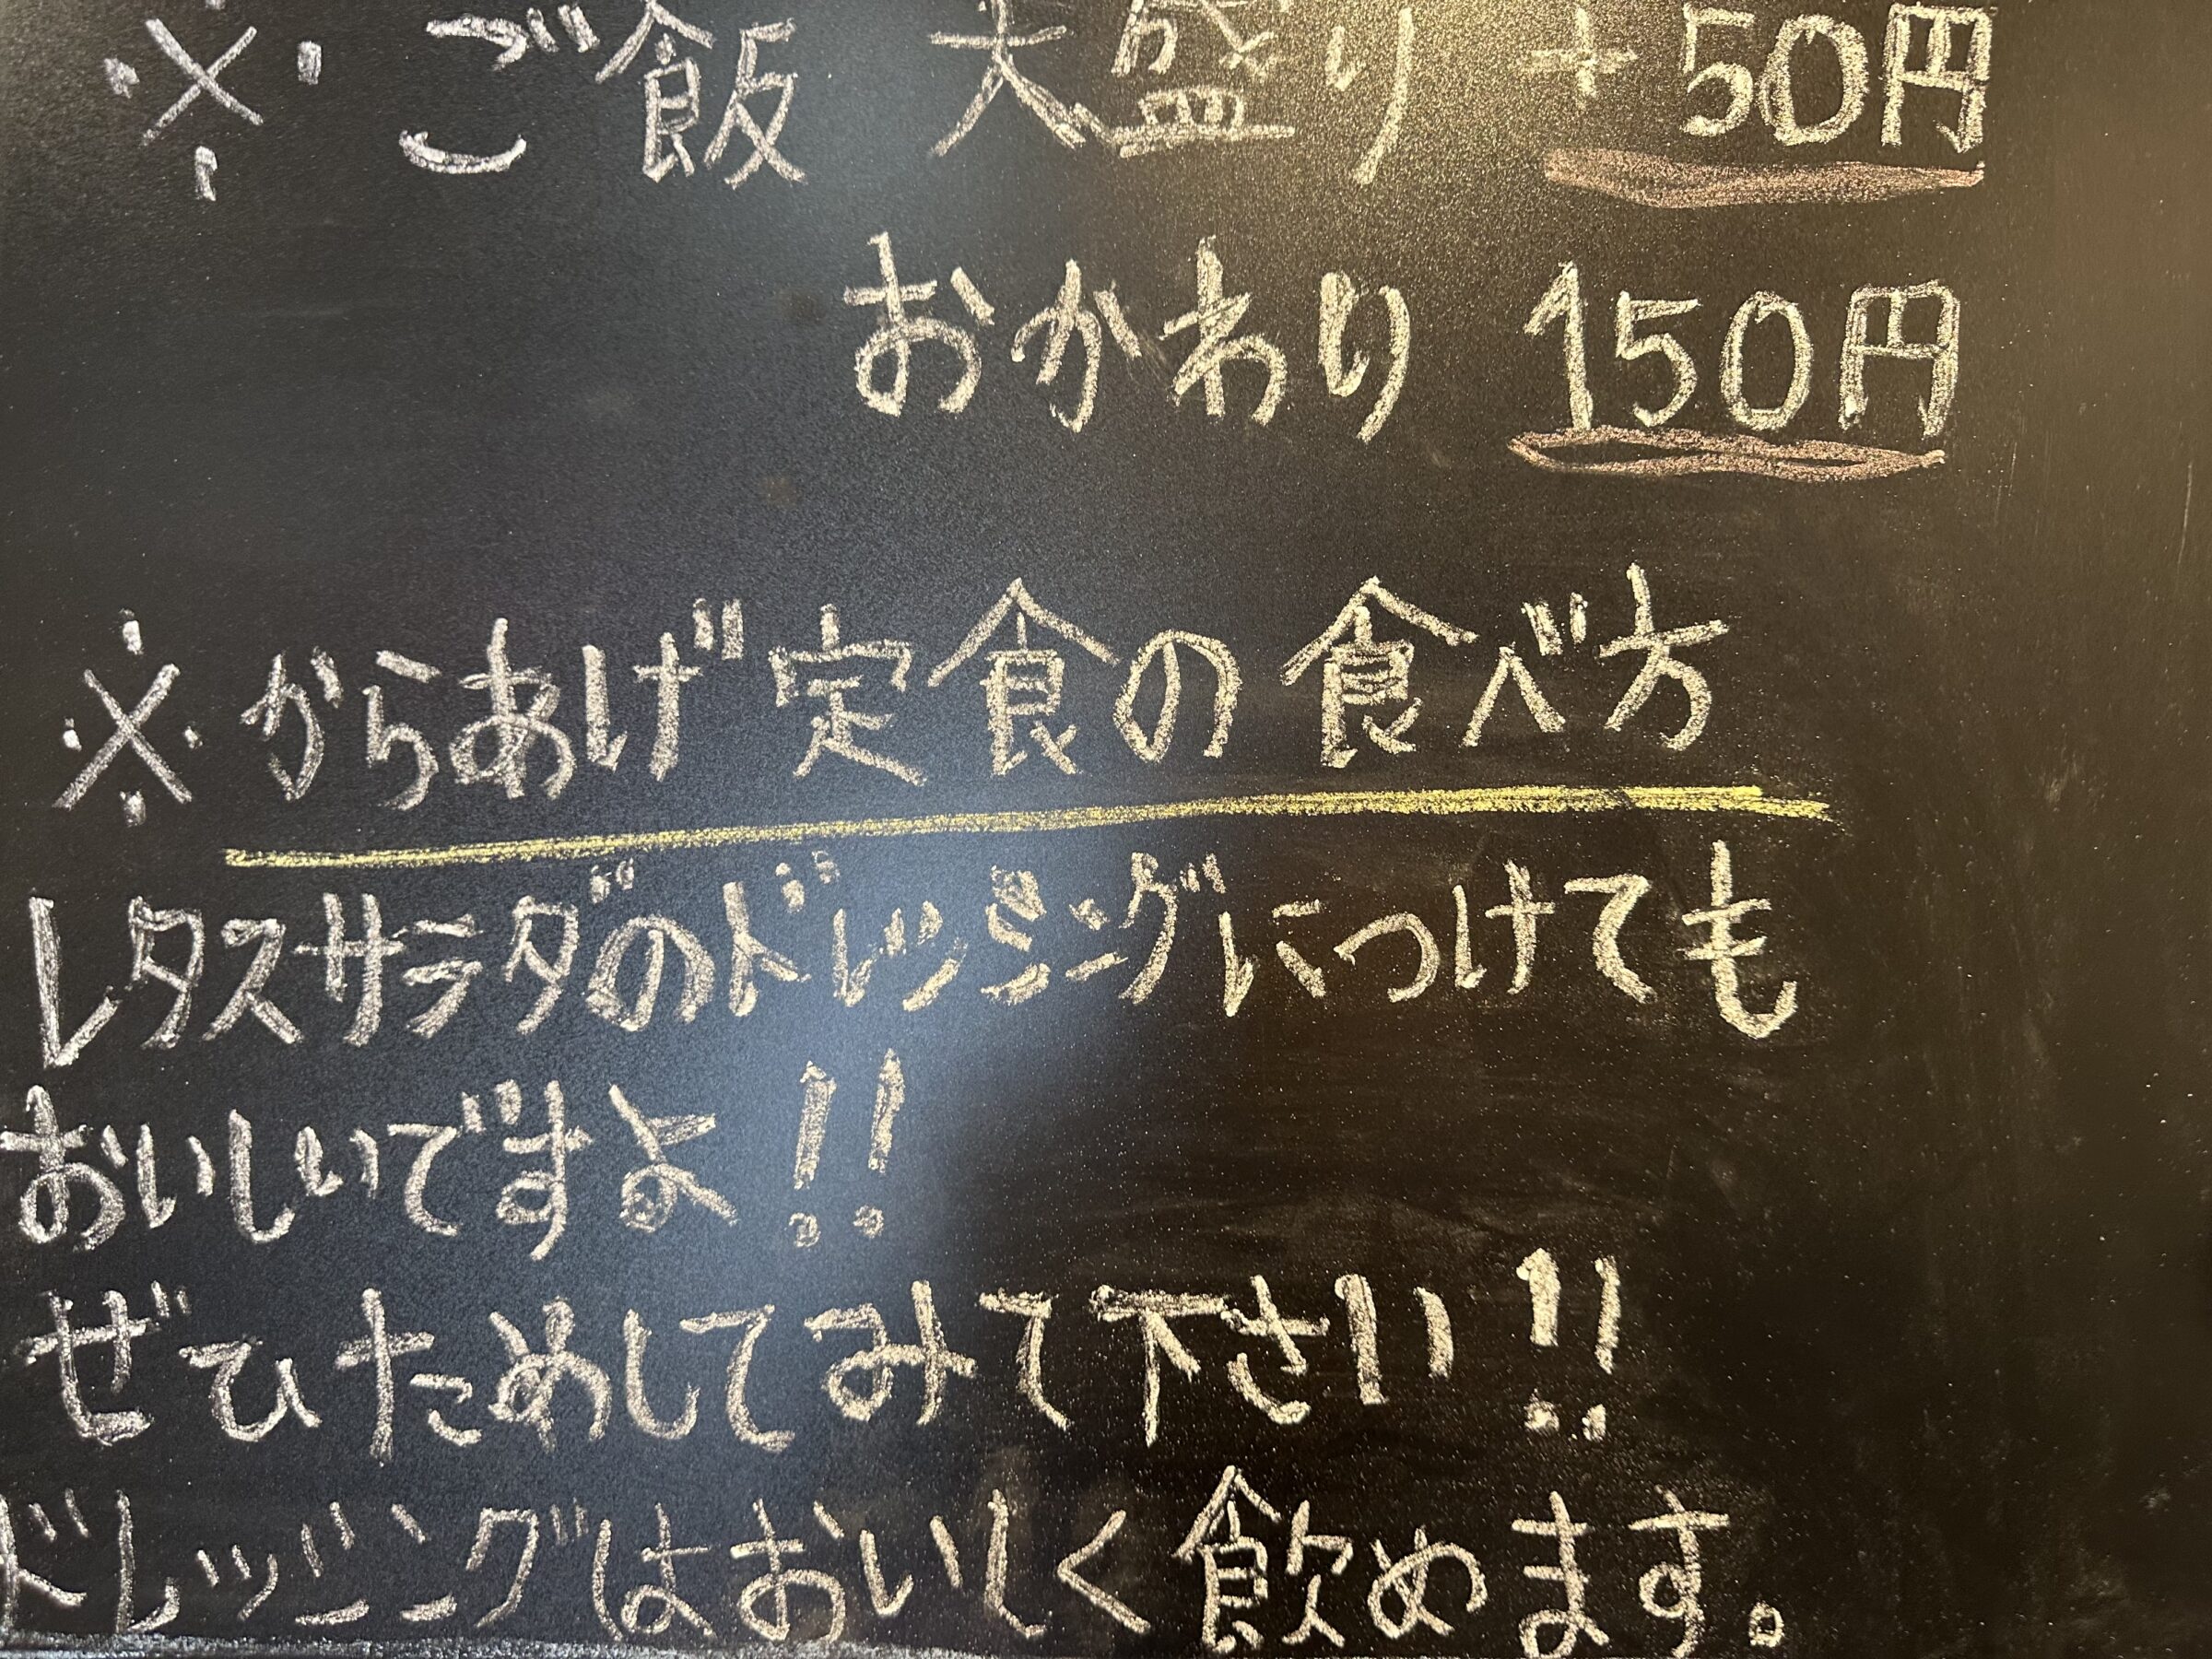 ※ ご飯 大盛り +50円
おかわり 150円
※からあげ定食の食べ方
レタスサラダのドレッシングにつけても
おいしいですよ!!
ぜひためしてみて下さい!!
ドレッシングはおいしく飲めます。